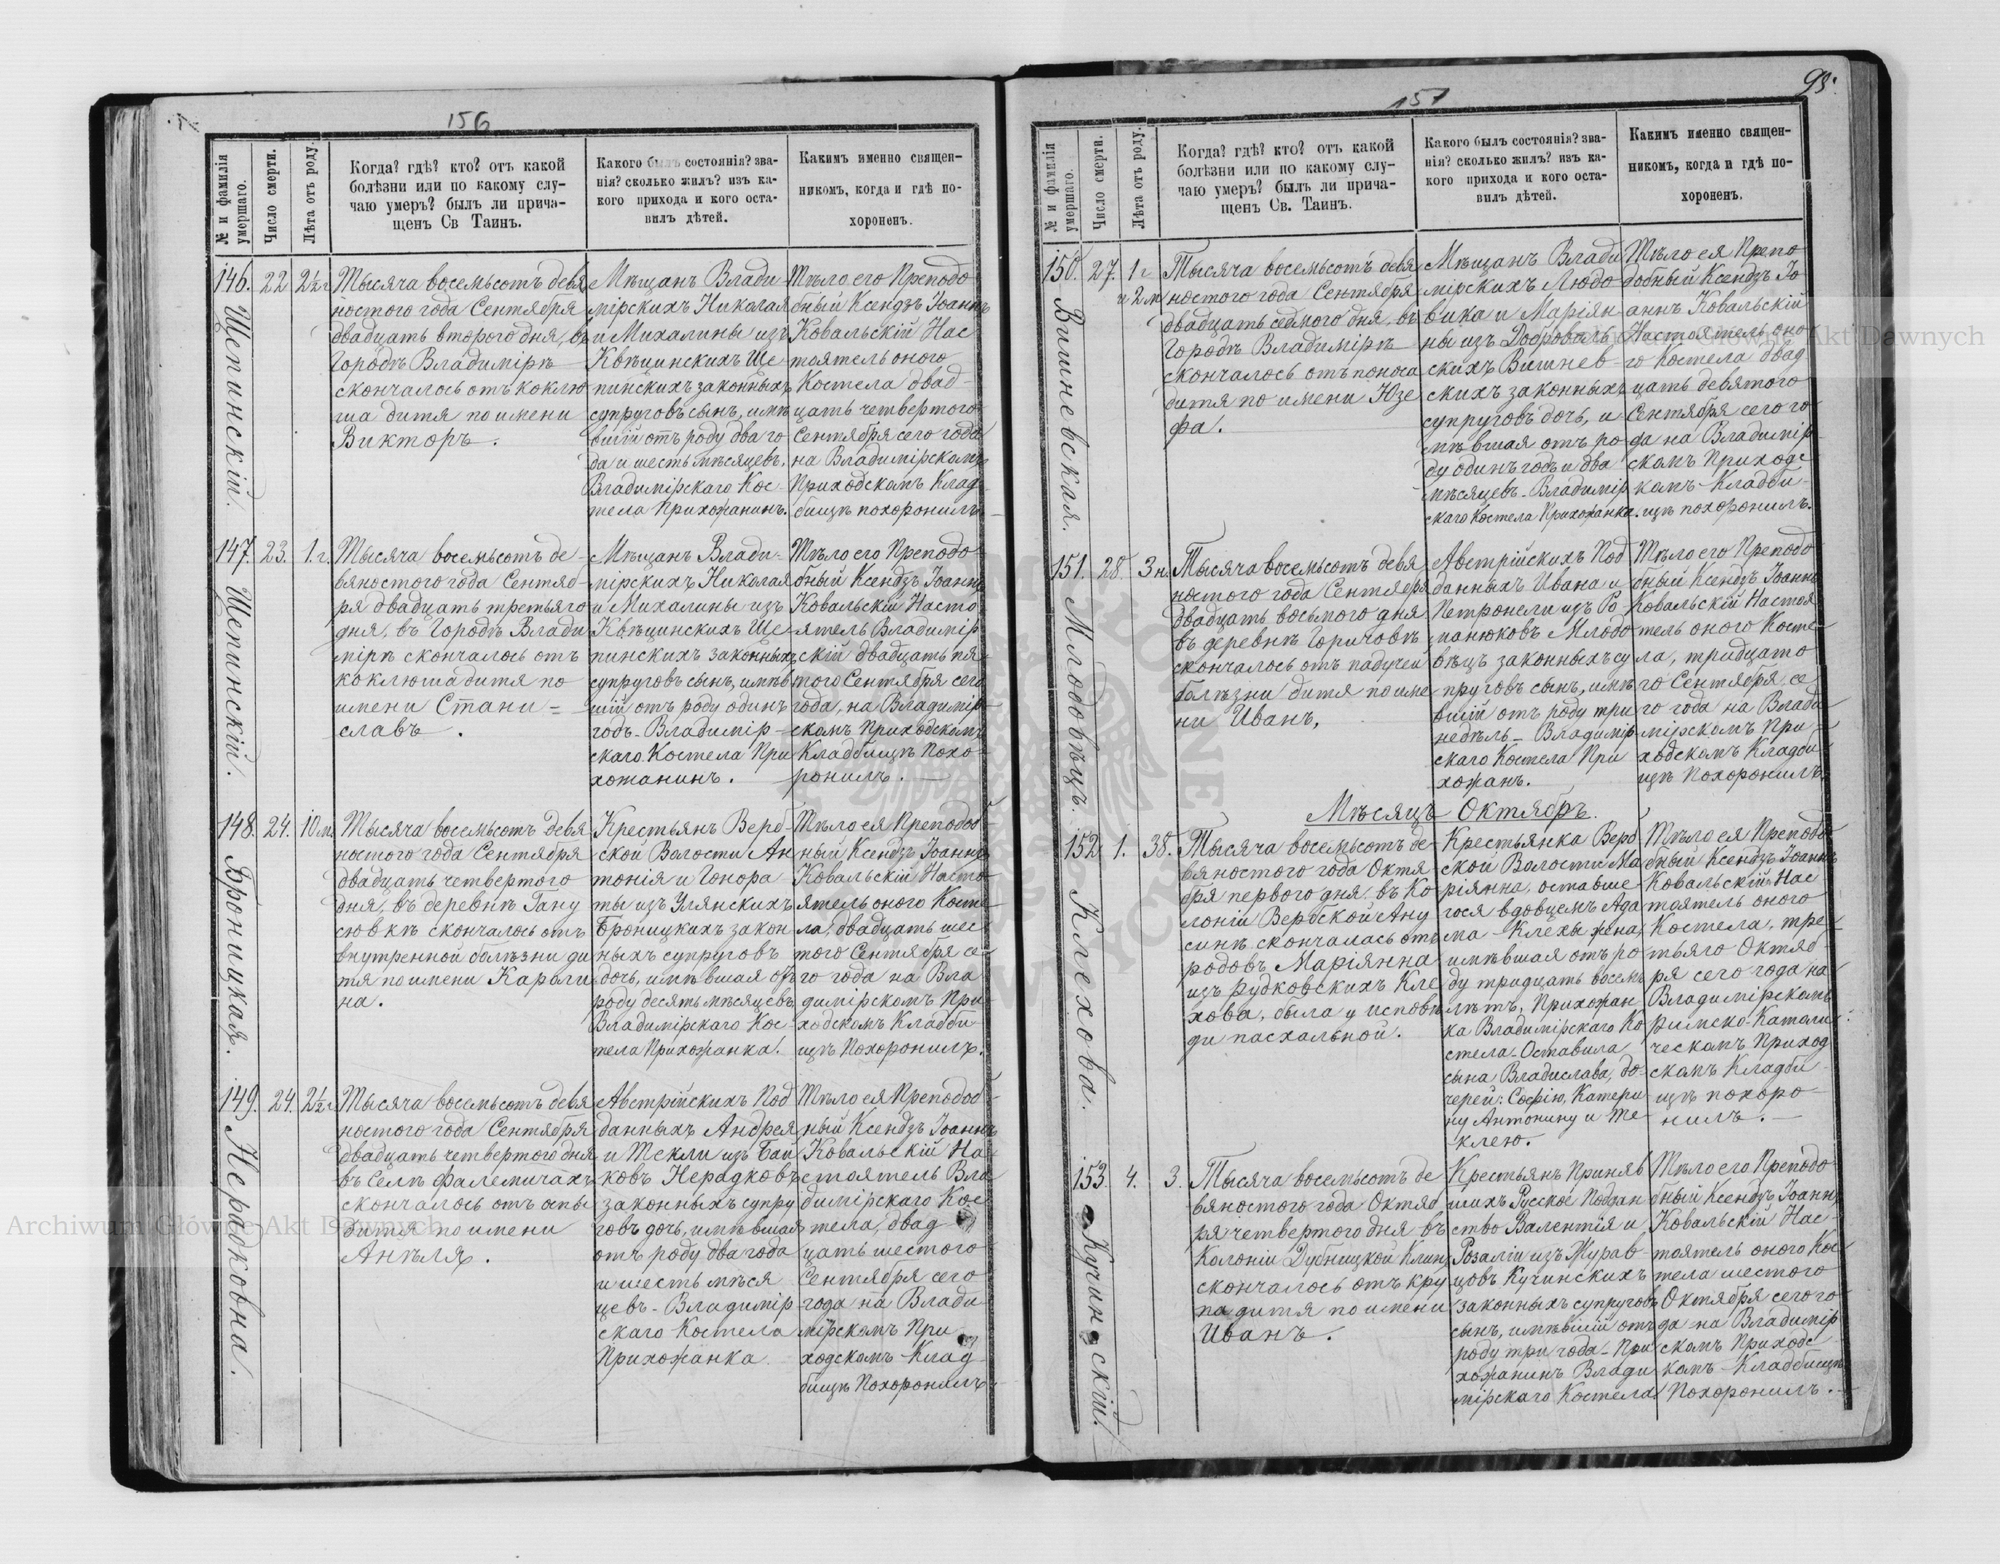 156
№ и фамилія умершаго.
Число смерти.
Лѣта отъ роду.
Когда? гдѣ? кто? отъ какой
болѣзни или по какому слу-
чаю умеръ? былъ ли прича-
щенъ Св Таинъ.
Какого былъ состоянія? зва-
нія? сколько жилъ? изъ ка-
кого прихода и кого оста-
вилъ дѣтей.
Какимъ именно священ-
никомъ, когда и гдѣ по-
хороненъ.
146.
Щепинскій.
22
2½ г
Тысяча восемьсотъ девя
ностого года Сентября
двадцать второго дня, въ
Городѣ Владимірѣ
скончалось отъ коклю
ша дитя по имени
Викторъ.
Мѣщанъ Влади
мірскихъ Николая
и Михалины изъ
Квѣцинскихъ Ще
пинскихъ законныхъ
супруговъ сынъ, имѣ
вшій отъ роду два го
да и шесть мѣсяцевъ.
Владимірскаго Кос-
тела Прихожанинъ.
Тѣло его Преподо
бный Ксендзъ Іоаннъ
Ковальскій Нас
тоятель оного
Костела двад-
цать четвертого
Сентября сего года
на Владимірскомъ
Приходскомъ Клад-
бищѣ похоронилъ
147.
Щепинскій.
23.
1. г.
Тысяча восемьсотъ де-
вяностого года Сентяб-
ря двадцать третьяго
дня, въ Городѣ Влади
мірѣ скончалось отъ
коклюша дитя по
имени Стани=
славъ.
Мѣщанъ Влади-
мірскихъ Николая
и Михалины изъ
Квѣцинскихъ Ще-
пинскихъ законныхъ
супруговъ сынъ, имѣв
шій отъ роду одинъ
годъ. Владимір-
скаго Костела При
хожанинъ.
Тѣло его Преподо
бный Ксендзъ Іоаннъ
Ковальскій Насто
ятель Владимір
скій двадцать пя
того Сентября сего
года, на Владимір-
скомъ Приходскомъ
Кладбищѣ Похо-
ронилъ.
148.
Броницкая.
24.
10 м.
Тысяча восемьсотъ девя
ностого года Сентября
двадцать четвертого
дня, въ деревнѣ Гану
совкѣ скончалось отъ
внутренной болѣзни ди
тя по имени Кароли
на.
Крестьянъ Верб-
ской Волости Ан
тонія и Гонора
ты изъ Улянскихъ
Броницкихъ закон
ныхъ супруговъ
дочь, имѣвшая отъ
роду десять мѣсяцевъ
Владимірскаго Кос-
тела Прихожанка.
Тѣло ея Преподоб-
ный Ксендзъ Іоаннъ
Ковальскій Насто-
ятель оного Косте-
ла, двадцать шес
того Сентября се-
го года на Вла
димірскомъ При-
ходскомъ Кладби
щѣ Похоронилъ.
149.
Нерадковна.
24.
2½ г
Тысяча восемьсотъ девя
ностого года Сентября
двадцать четвертого дня
въ Селѣ Фалемичахъ
скончалось отъ оспы
дитя по имени
Анѣля.
Австрійскихъ Под
данныхъ Андрея
и Текли изъ Бай
ковъ Нерадковъ
законныхъ супру
говъ дочь, имѣвшая
отъ роду два года
и шесть мѣся
цевъ - Владимір
скаго Костела
Прихожанка.
Тѣло ея Преподоб-
ный Ксендзъ Іоаннъ
Ковальскій На-
стоятель Вла
димірскаго Кос-
тела, двад
цать шестого
Сентября сего
года на Влади
мірскомъ При
ходскомъ Клад
бищѣ Похоронилъ
157
93.
№ и фамилія умершаго.
Число смерти.
Лѣта отъ роду.
Когда? гдѣ? кто? отъ какой
болѣзни или по какому слу-
чаю умеръ? былъ ли прича-
щенъ Св. Таинъ.
Какого былъ состоянія? зва-
нія? сколько жилъ? изъ ка-
кого прихода и кого оста-
вилъ дѣтей.
Какимъ именно священ-
никомъ, когда и гдѣ по-
хороненъ.
150.
Вишневская.
27.
1 г
и 2 м
Тысяча восемьсотъ девя
ностого года Сентября
двадцать седмого дня, въ
Городѣ Владимірѣ
скончалось отъ поноса
дитя по имени Юзе
фа.
Мѣщанъ Влади
мірскихъ Людо
вика и Маріян
ны изъ Добровол
скихъ Вишнев-
скихъ законныхъ
супруговъ дочь, и
мѣвшая отъ ро
ду одинъ годъ и два
мѣсяцевъ. Владимір
скаго Костела Прихожанка.
Тѣло ея Препо
добный Ксендзъ Іо
аннъ Ковальскій
Настоятель оно
го Костела двад
цать девятого
Сентября сего го
да на Владимір
скомъ Приходс
комъ Кладби-
щѣ похоронилъ.
151.
Млодовѣцъ.
28.
3 н.
Тысяча восемьсотъ девя
ностого года Сентября
двадцать восьмого дня
въ деревнѣ Горичовѣ
скончалось отъ падучей
болѣзни дитя по име
ни Иванъ,
Австрійскихъ Под
данныхъ Ивана и
Петронели изъ Ро
манюковъ Млодо
вѣцъ законныхъ су
пруговъ сынъ, имѣ
вшій отъ роду три
недѣль - Владимір
скаго Костела При
хожанъ.
Тѣло его Преподо
бный Ксендзъ Іоаннъ
Ковальскій Настоя
тель оного Косте-
ла, тридцато
го Сентября се
го года на Влади
мірскомъ При
ходскомъ Кладби
щѣ Похоронилъ.
Мѣсяцъ Октябрь.
152.
Клехова.
1.
38.
Тысяча восемьсотъ де-
вяностого года Октя
бря первого дня въ Ко
лоніи Вербской Ану
синѣ скончалась отъ
родовъ Маріянна
изъ Рудковскихъ Кле
хова, была у исповѣ
ди пасхальной.
Крестьянка Верб
ской Волости Ма
ріянна, оставше
гося вдовцемъ Ада
ма Клехы жена,
имѣвшая отъ ро
ду тридцать восемь
лѣтъ, Прихожан
ка Владимірскаго Ко
стела. Оставила
сына Владислава, до-
черей: Софію, Катери
ну Антонину и Те
клею.
Тѣло ея Преподо
бный Ксендзъ Іоаннъ
Ковальскій Нас
тоятель оного
Костела, тре-
тьяго Октяб-
ря сего года на
Владимірскомъ
Римско-Католи-
ческомъ Приход
скомъ Кладби-
щѣ похоро-
нилъ.
153.
Кучинскій.
4.
3.
Тысяча восемьсотъ де
вяностого года Октяб
ря четвертого дня въ
Колоніи Дубницкой
скончалось отъ кру
па дитя по имени
Иванъ.
Крестьянъ Приняв
шихъ Русское Поддан
ство Валентія и
Розаліи изъ Журав-
цовъ Кучинскихъ
законныхъ супруговъ
сынъ, имѣвшій отъ
роду три года - При
хожанинъ Влади
мірскаго Костела
Тѣло его Преподо
бный Ксендзъ Іоаннъ
Ковальскій Нас-
тоятель оного Кос
тела шестого
Октября сего го
да на Владимір
скомъ Приходс
комъ Кладбищѣ
Похоронилъ.
Archiwum Główne Akt Dawnych
Archiwum Główne Akt Dawnych